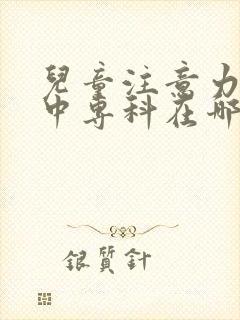 兒童注意力
中專科在哪
銀質針